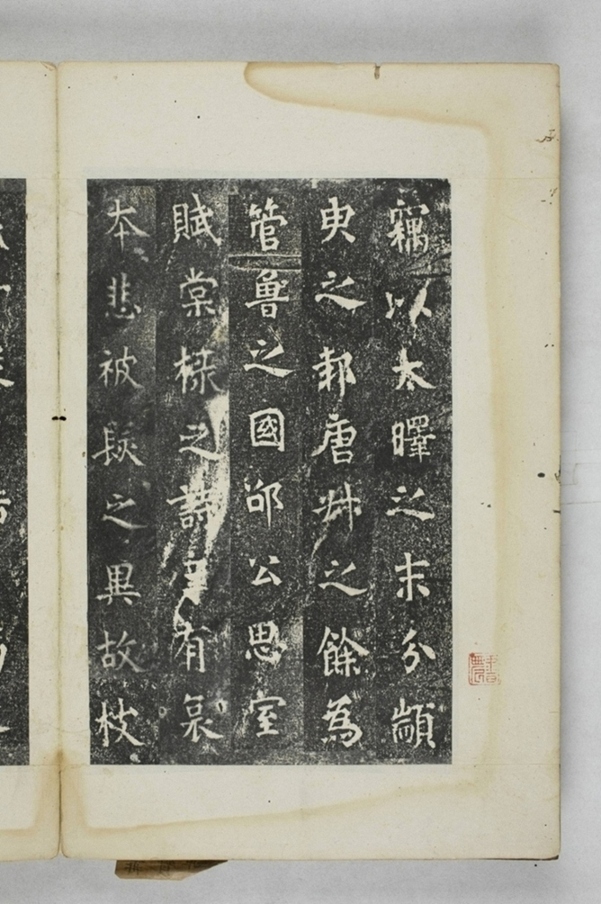 竊以太曎之末分顓
臾之邦唐叔之餘為
管魯之國邵公思室
賦棠棣之詩有
本悲被之異故枝